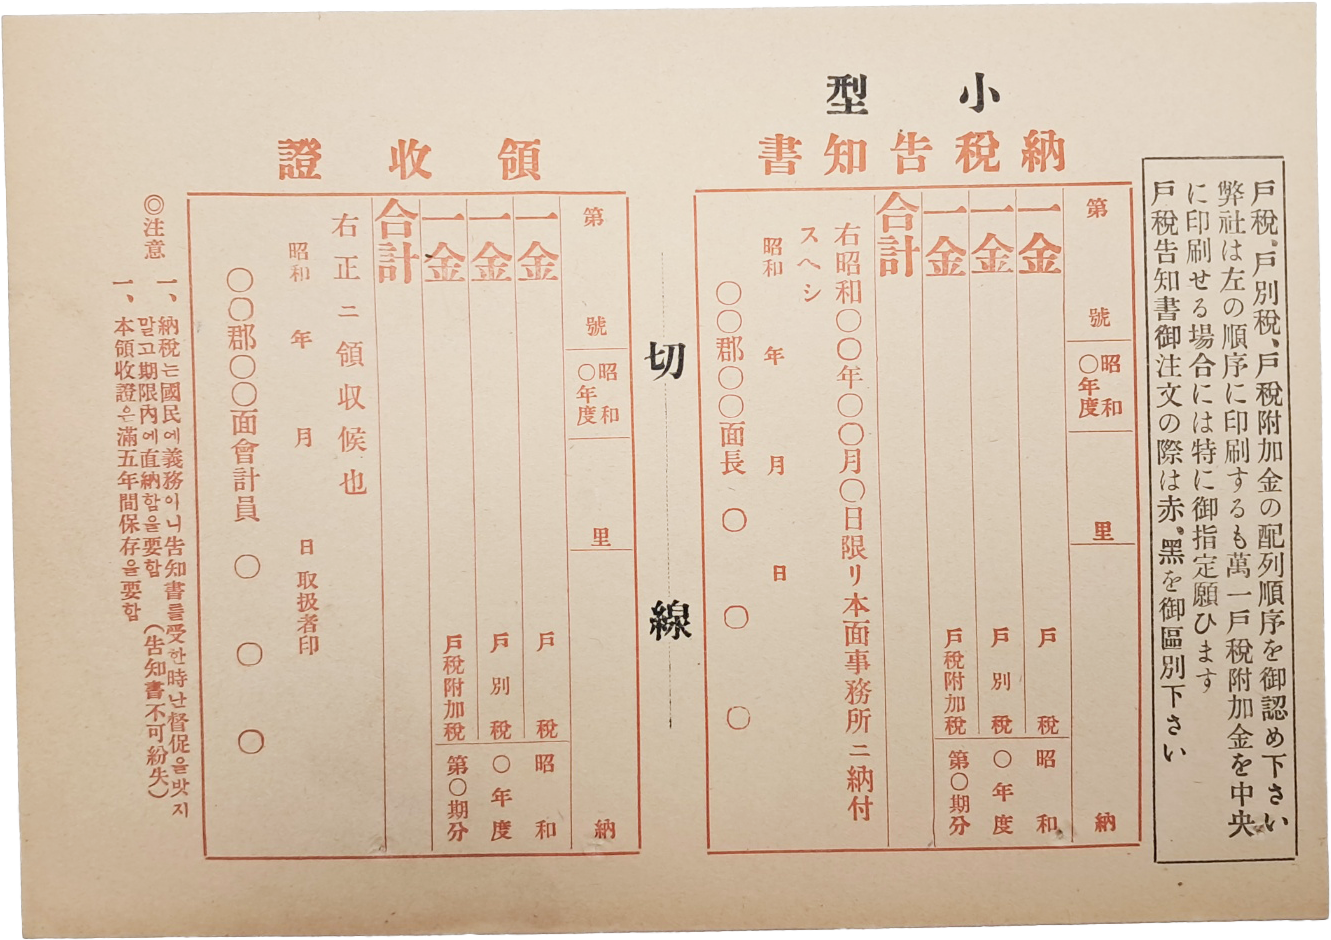 戸稅、戸別稅、戸稅附加金の配列順序を御認め下さい
弊社は左の順序に印刷するも萬一戸稅附加金を中央
に印刷せる場合には特に御指定願ひます
戸稅告知書御注文の際は赤、黑を御區別下さい
小型
納稅告知書
第 號
昭和〇年度
里
納
一金 戸稅 昭和
一金 戸別稅 〇年度
一金 戸稅附加稅 第〇期分
合計
右昭和〇〇年〇〇月〇日限リ本面事務所ニ納付
スヘシ
昭和 年 月 日
〇〇郡〇〇面長 〇 〇 〇
切線
領收證
第 號
昭和〇年度
里
納
一金 戸稅 昭和
一金 戸別稅 〇年度
一金 戸稅附加稅 第〇期分
合計
右正ニ領収候也
昭和 年 月 日 取扱者印
〇〇郡〇〇面會計員 〇 〇 〇
◎注意
一、納稅는國民에義務아니告知書를受한時난督促을밧지
말고期限內에直納함을要함 (告知書不可紛失)
一、本領收證은滿五年間保存을要함